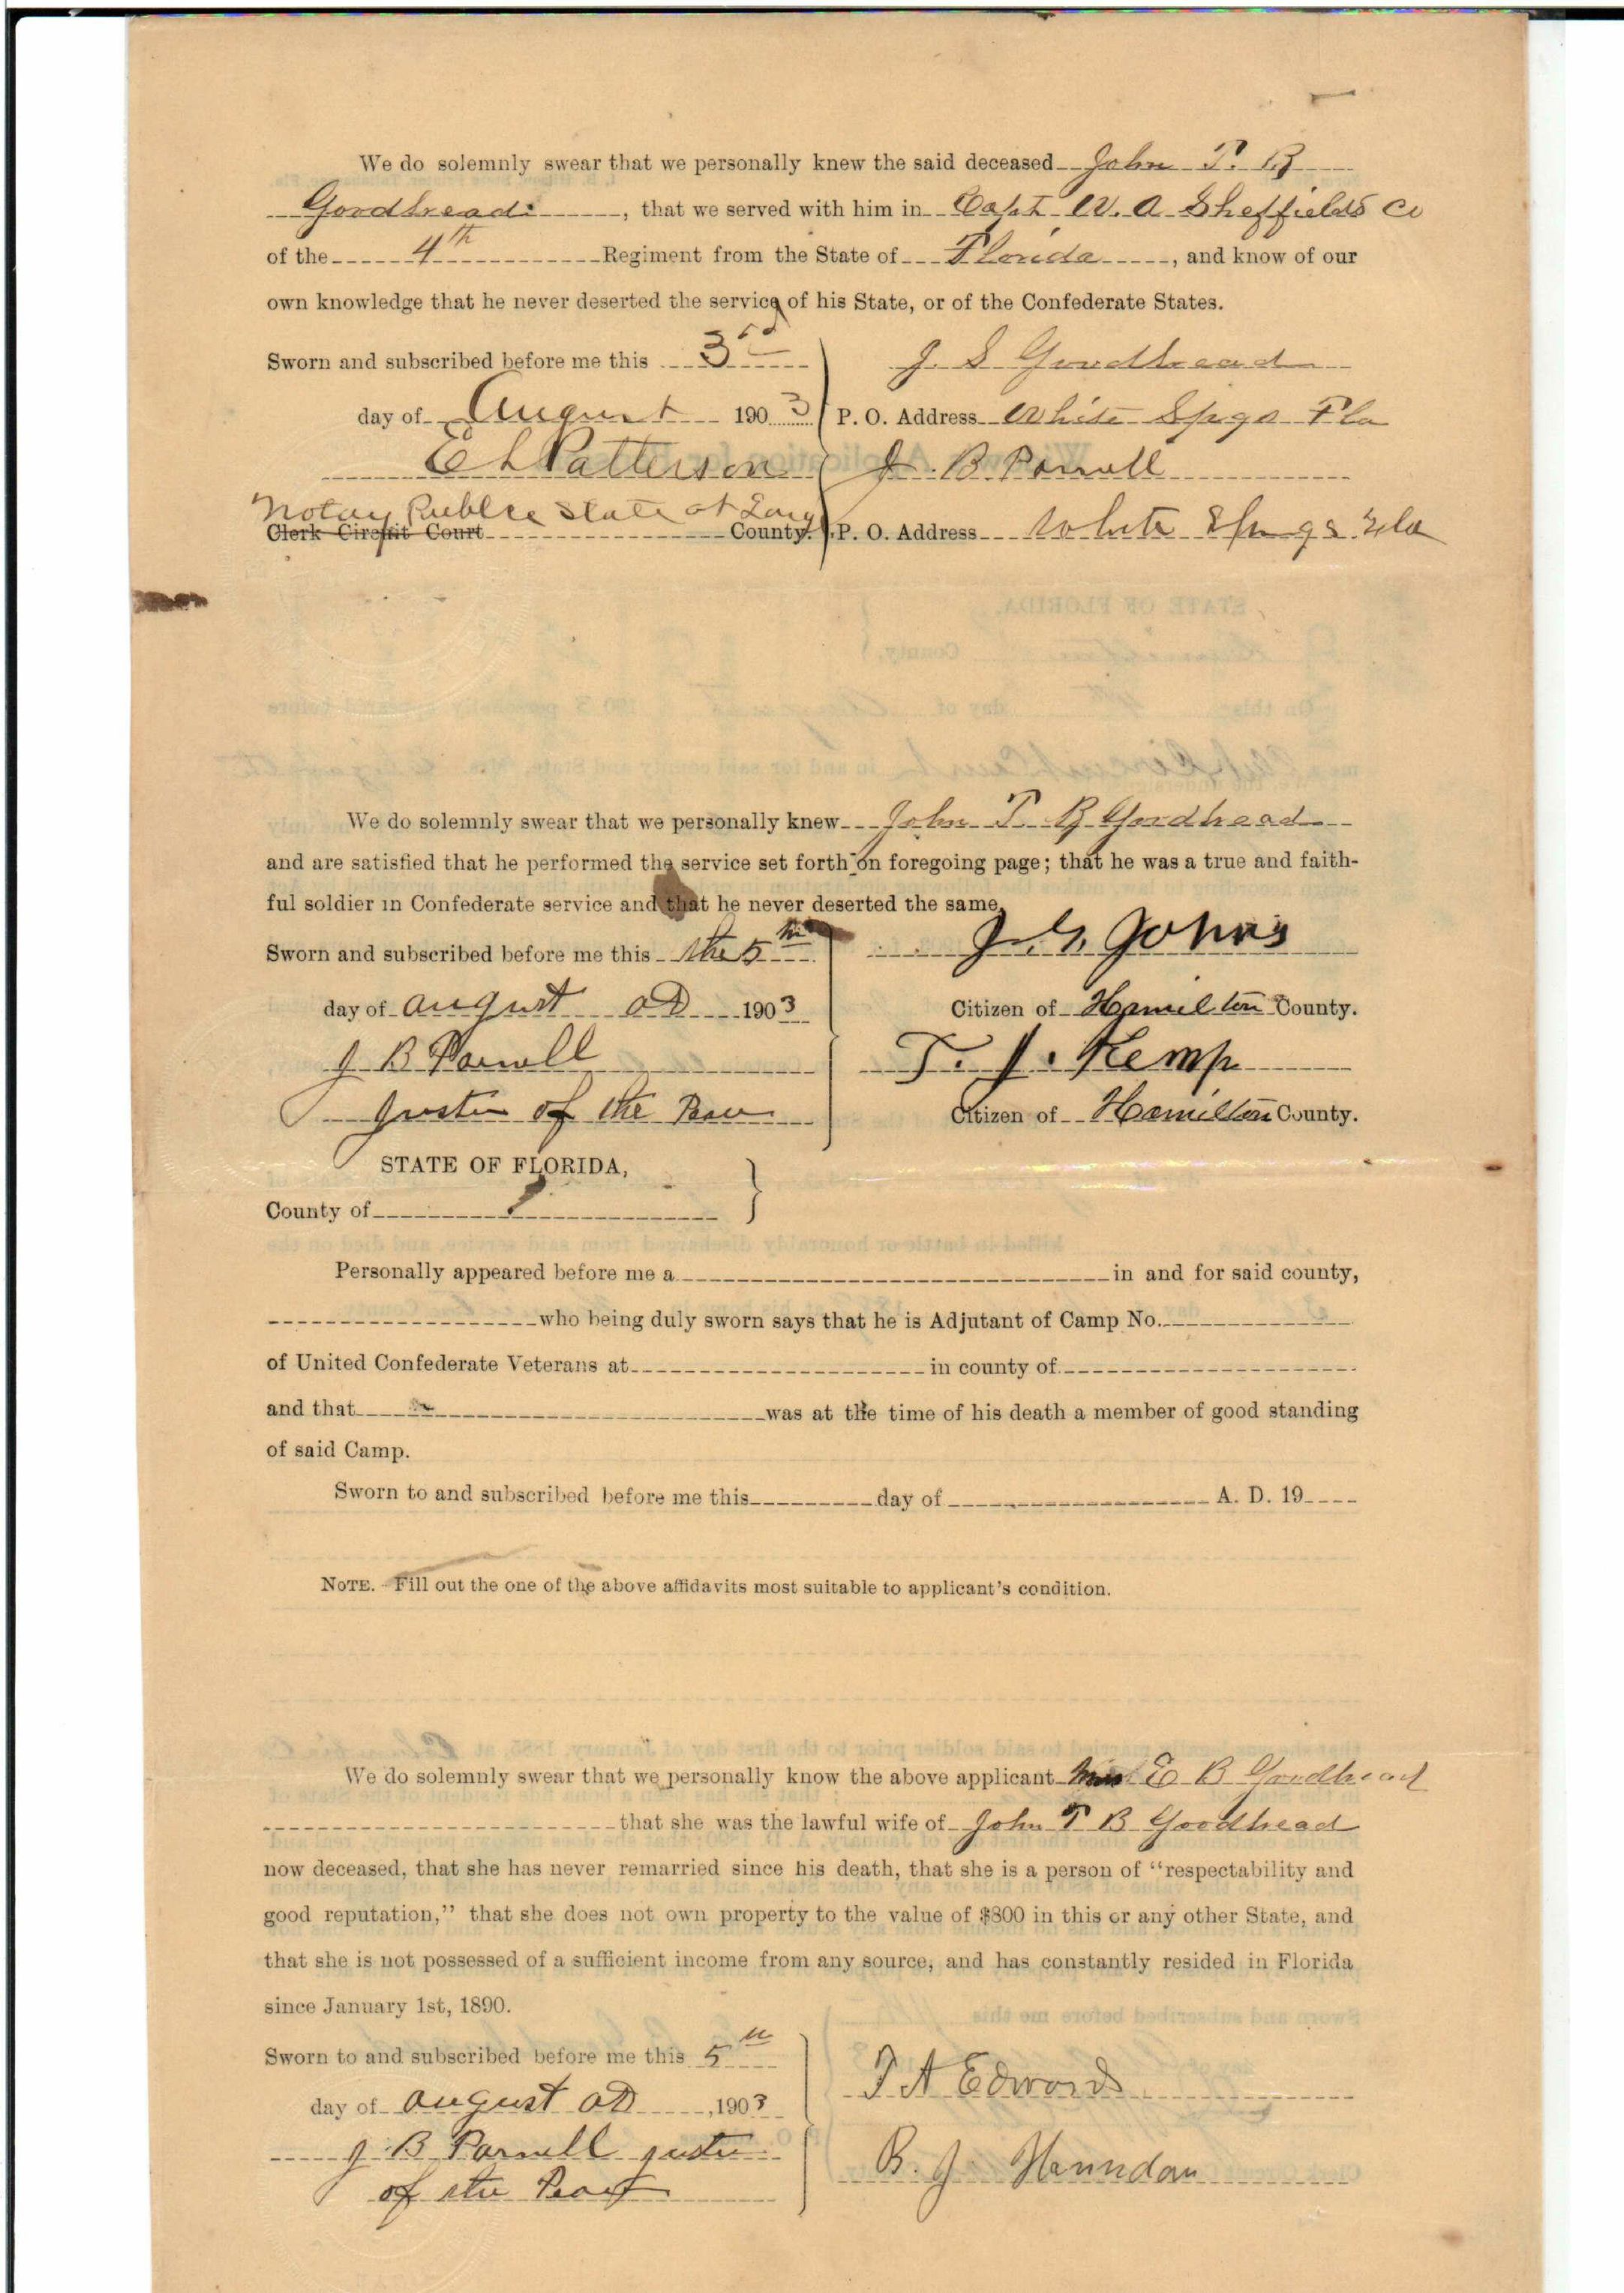 We do solemnly swear that we personally knew the said deceased John T. B
Goodbread, that we served with him in Capt W. A Sheffields Co
of the 4th Regiment from the State of Florida, and know of our
own knowledge that he never deserted the service of his State, or of the Confederate States.
Sworn and subscribed before me this 3rd
J. S Goodbread
day of August 1903
P. O. Address White Spgs Fla
E L Patterson
J. B. Parnell
Notary Public State at Large
Clerk Circuit Court County.
P. O. Address White Springs Fla
We do solemnly swear that we personally knew John T. B Goodbread
and are satisfied that he performed the service set forth on foregoing page; that he was a true and faith-
ful soldier in Confederate service and that he never deserted the same.
Sworn and subscribed before me this the 5th
J. G. Johns
day of august AD 1903
Citizen of Hamilton County.
J B Parnell
T. J. Kemp
Justice of the Peace
Citizen of Hamilton County.
STATE OF FLORIDA,
County of
Personally appeared before me a in and for said county,
who being duly sworn says that he is Adjutant of Camp No.
of United Confederate Veterans at in county of
and that was at the time of his death a member of good standing
of said Camp.
Sworn to and subscribed before me this day of A. D. 19
NOTE. - Fill out the one of the above affidavits most suitable to applicant's condition.
We do solemnly swear that we personally know the above applicant Mrs E B Goodbread
that she was the lawful wife of John T B Goodbread
now deceased, that she has never remarried since his death, that she is a person of "respectability and
good reputation," that she does not own property to the value of $800 in this or any other State, and
that she is not possessed of a sufficient income from any source, and has constantly resided in Florida
since January 1st, 1890.
Sworn to and subscribed before me this 5th
T A Edwards
day of august AD, 1903
J. B Parnell justice
B. J Herndon
of the Peace